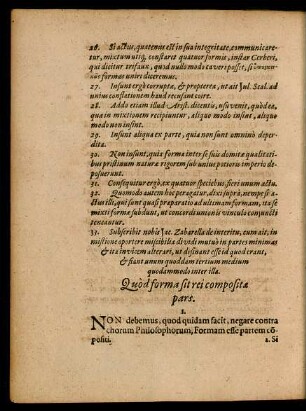 26. Si actus, quatenus est in sua integritate, communicare-
tur, mixtum utiq; constaret quatuor formis, instar Cerberi,
qui dicitur trifaux, quod nullo modo caveri posset, si
formas uniri diceremus.
27. Insunt ergò corruptæ, & propterea, ut ait Jul. Scal. ad
unius constationem haud recusant coire.
28. Addo etiam illud Arist. dicentis, usu venit, quòd ea,
quæ in mixtionem recipiuntur, aliquo modo insint, aliquo
modo non insint.
29. Insunt aliqua ex parte, quia non sunt omninò deper-
dita.
30. Non insunt, quia forma inter se suis dimitæ qualitati-
bus pristinum naturæ rigorem sub unius potioris imperio de-
posuerunt.
31. Consequitur ergò, ex quatuor speciebus fieri unum actu.
32. Quomodo autem hoc peragatur, dixi suprà, nempe si a-
ctus illi, qui sunt quasi præparatio ad ultimam formam, ita se
mixti formæ subdunt, ut concordi unionis vinculo conjuncti
teneantur.
33. Subscribit nobis Jac. Zabarella de interitu, cum ait, in
mistione oportere miscibilia dividi mutuò in partes minimas
& ita invicem alterari, ut desinant esse id quod erant,
& fiant unum quoddam tertium medium
quodammodo inter illa.
Quòd forma sit rei compositæ
pars.
1.
NON debemus, quod quidam facit, negare contra
chorum Philosophorum, Formam esse partem cõ-
positi.
2. Si